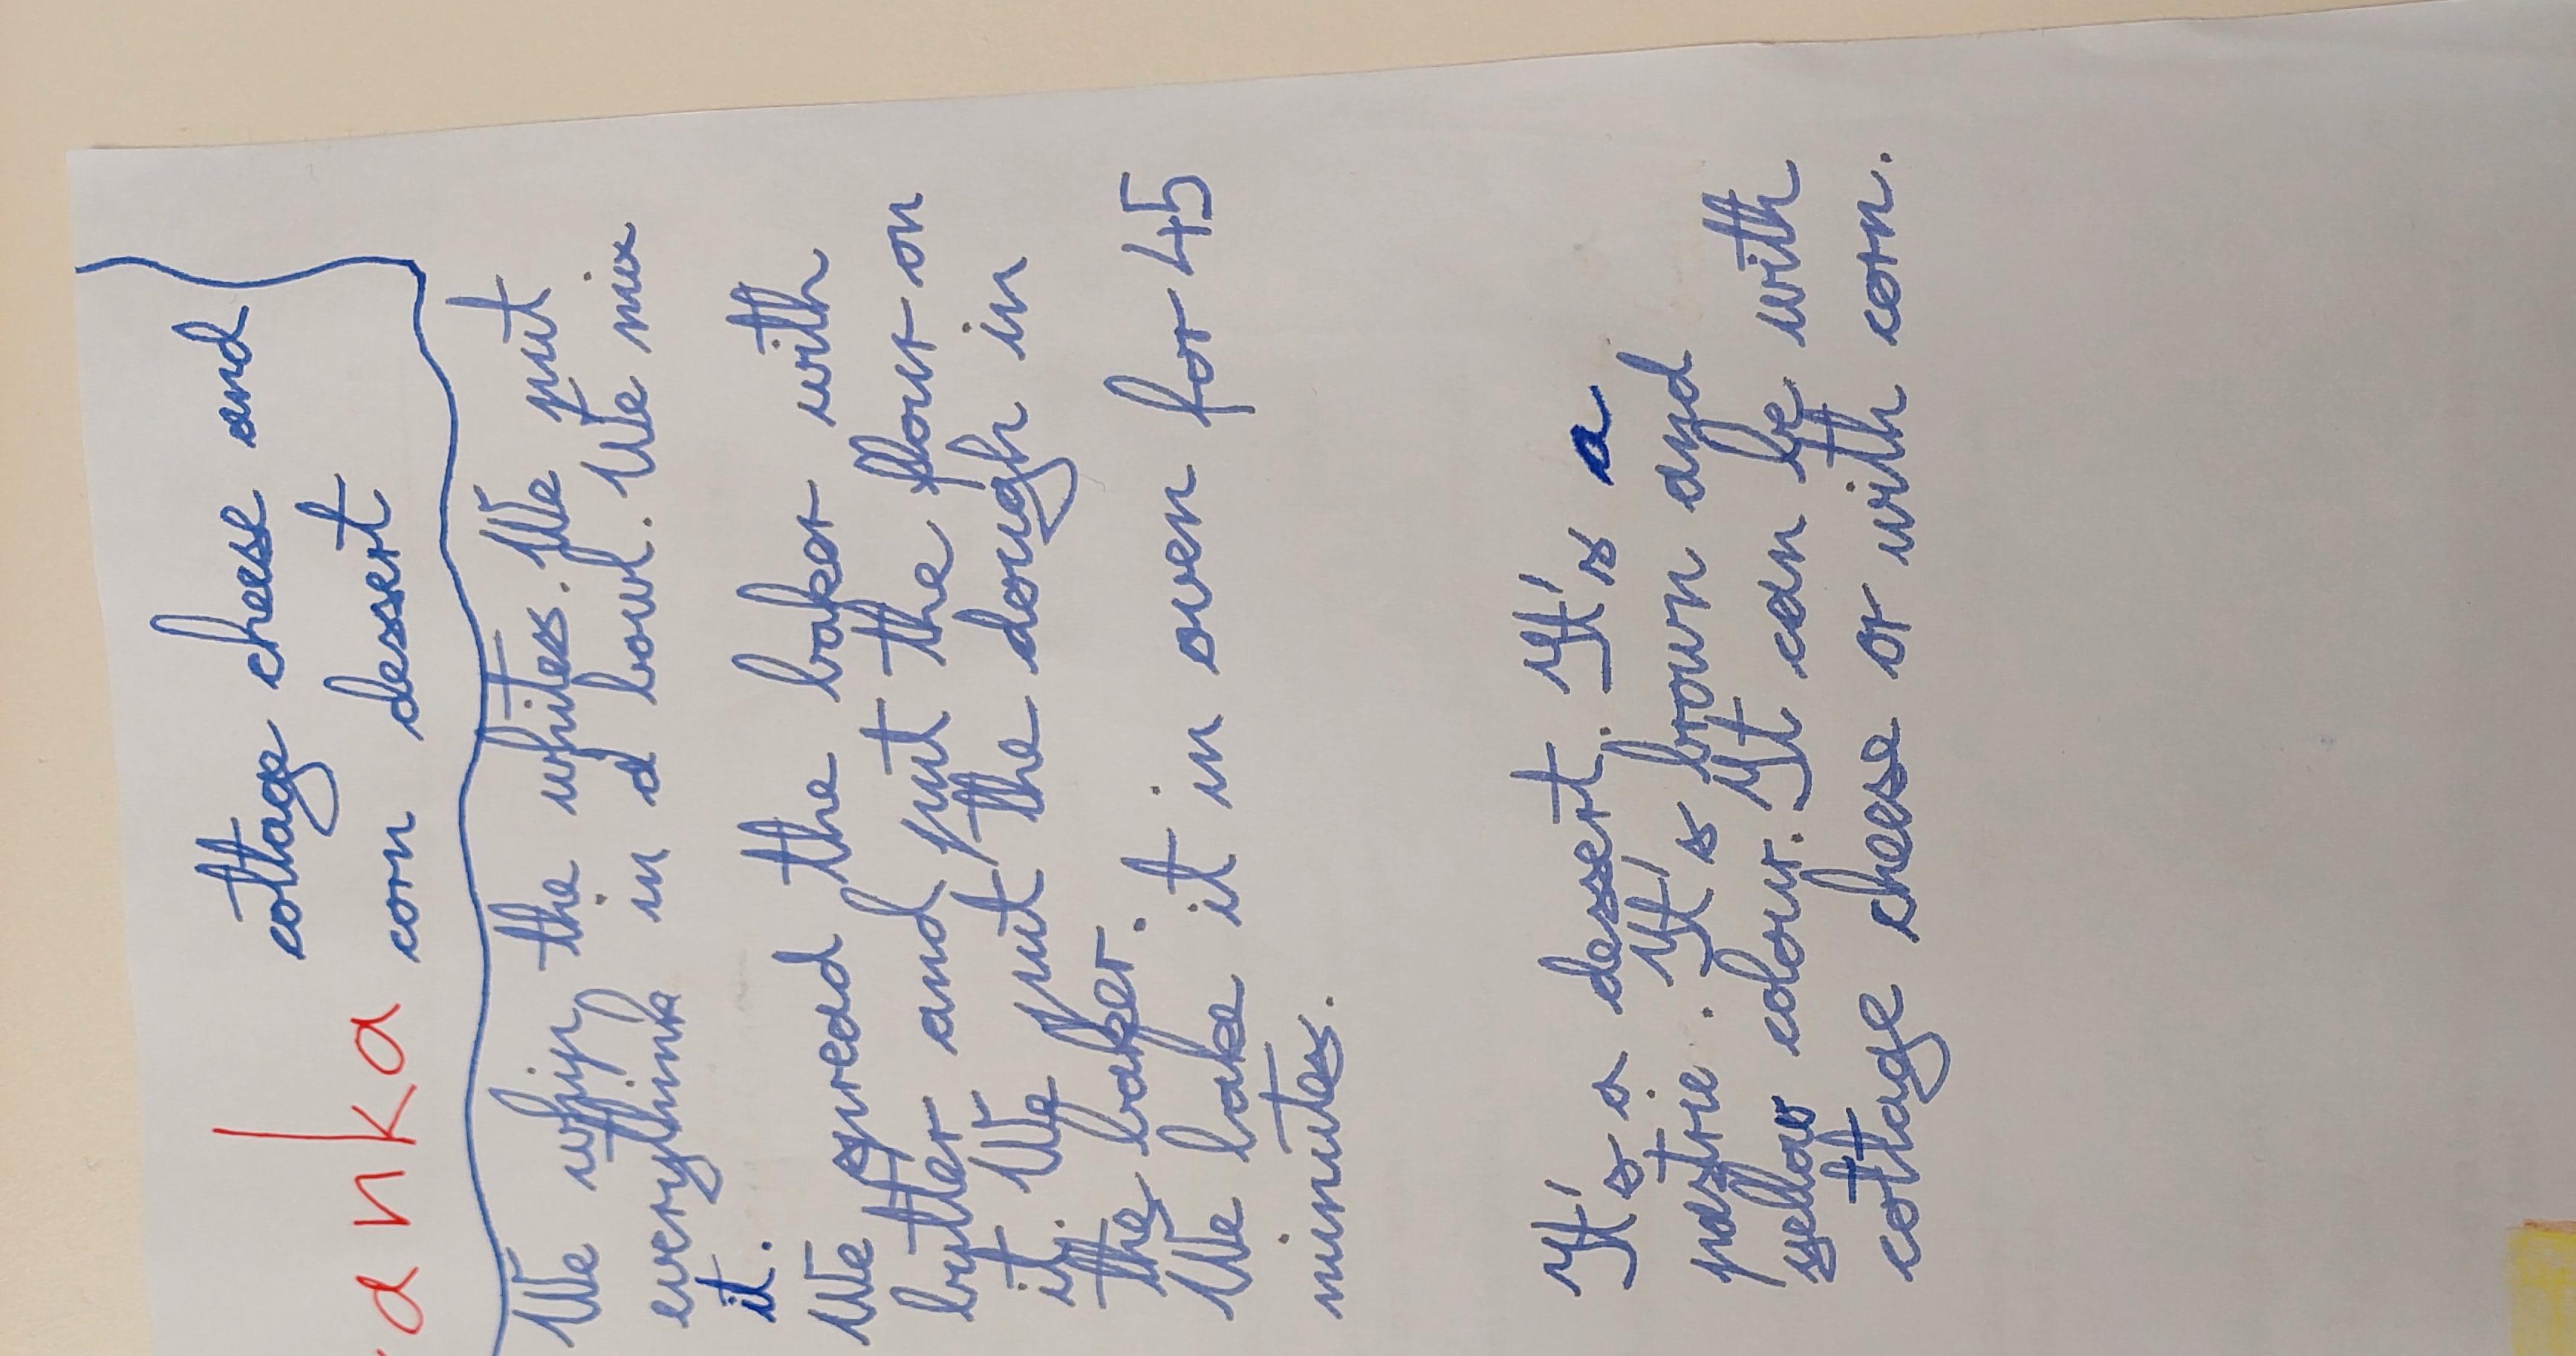 cottage cheese and
anka corn dessert
We whip the whites. We put
everythink in a bowl. We mix
it.
We spread the baker with
butter and put the flour on
it. We put the dough in
the baker.
We bake it in oven for 45
minutes.
It's a dessert. It's a
pastrie. It's brown and
yellow colour. It can be with
cottage cheese or with corn.